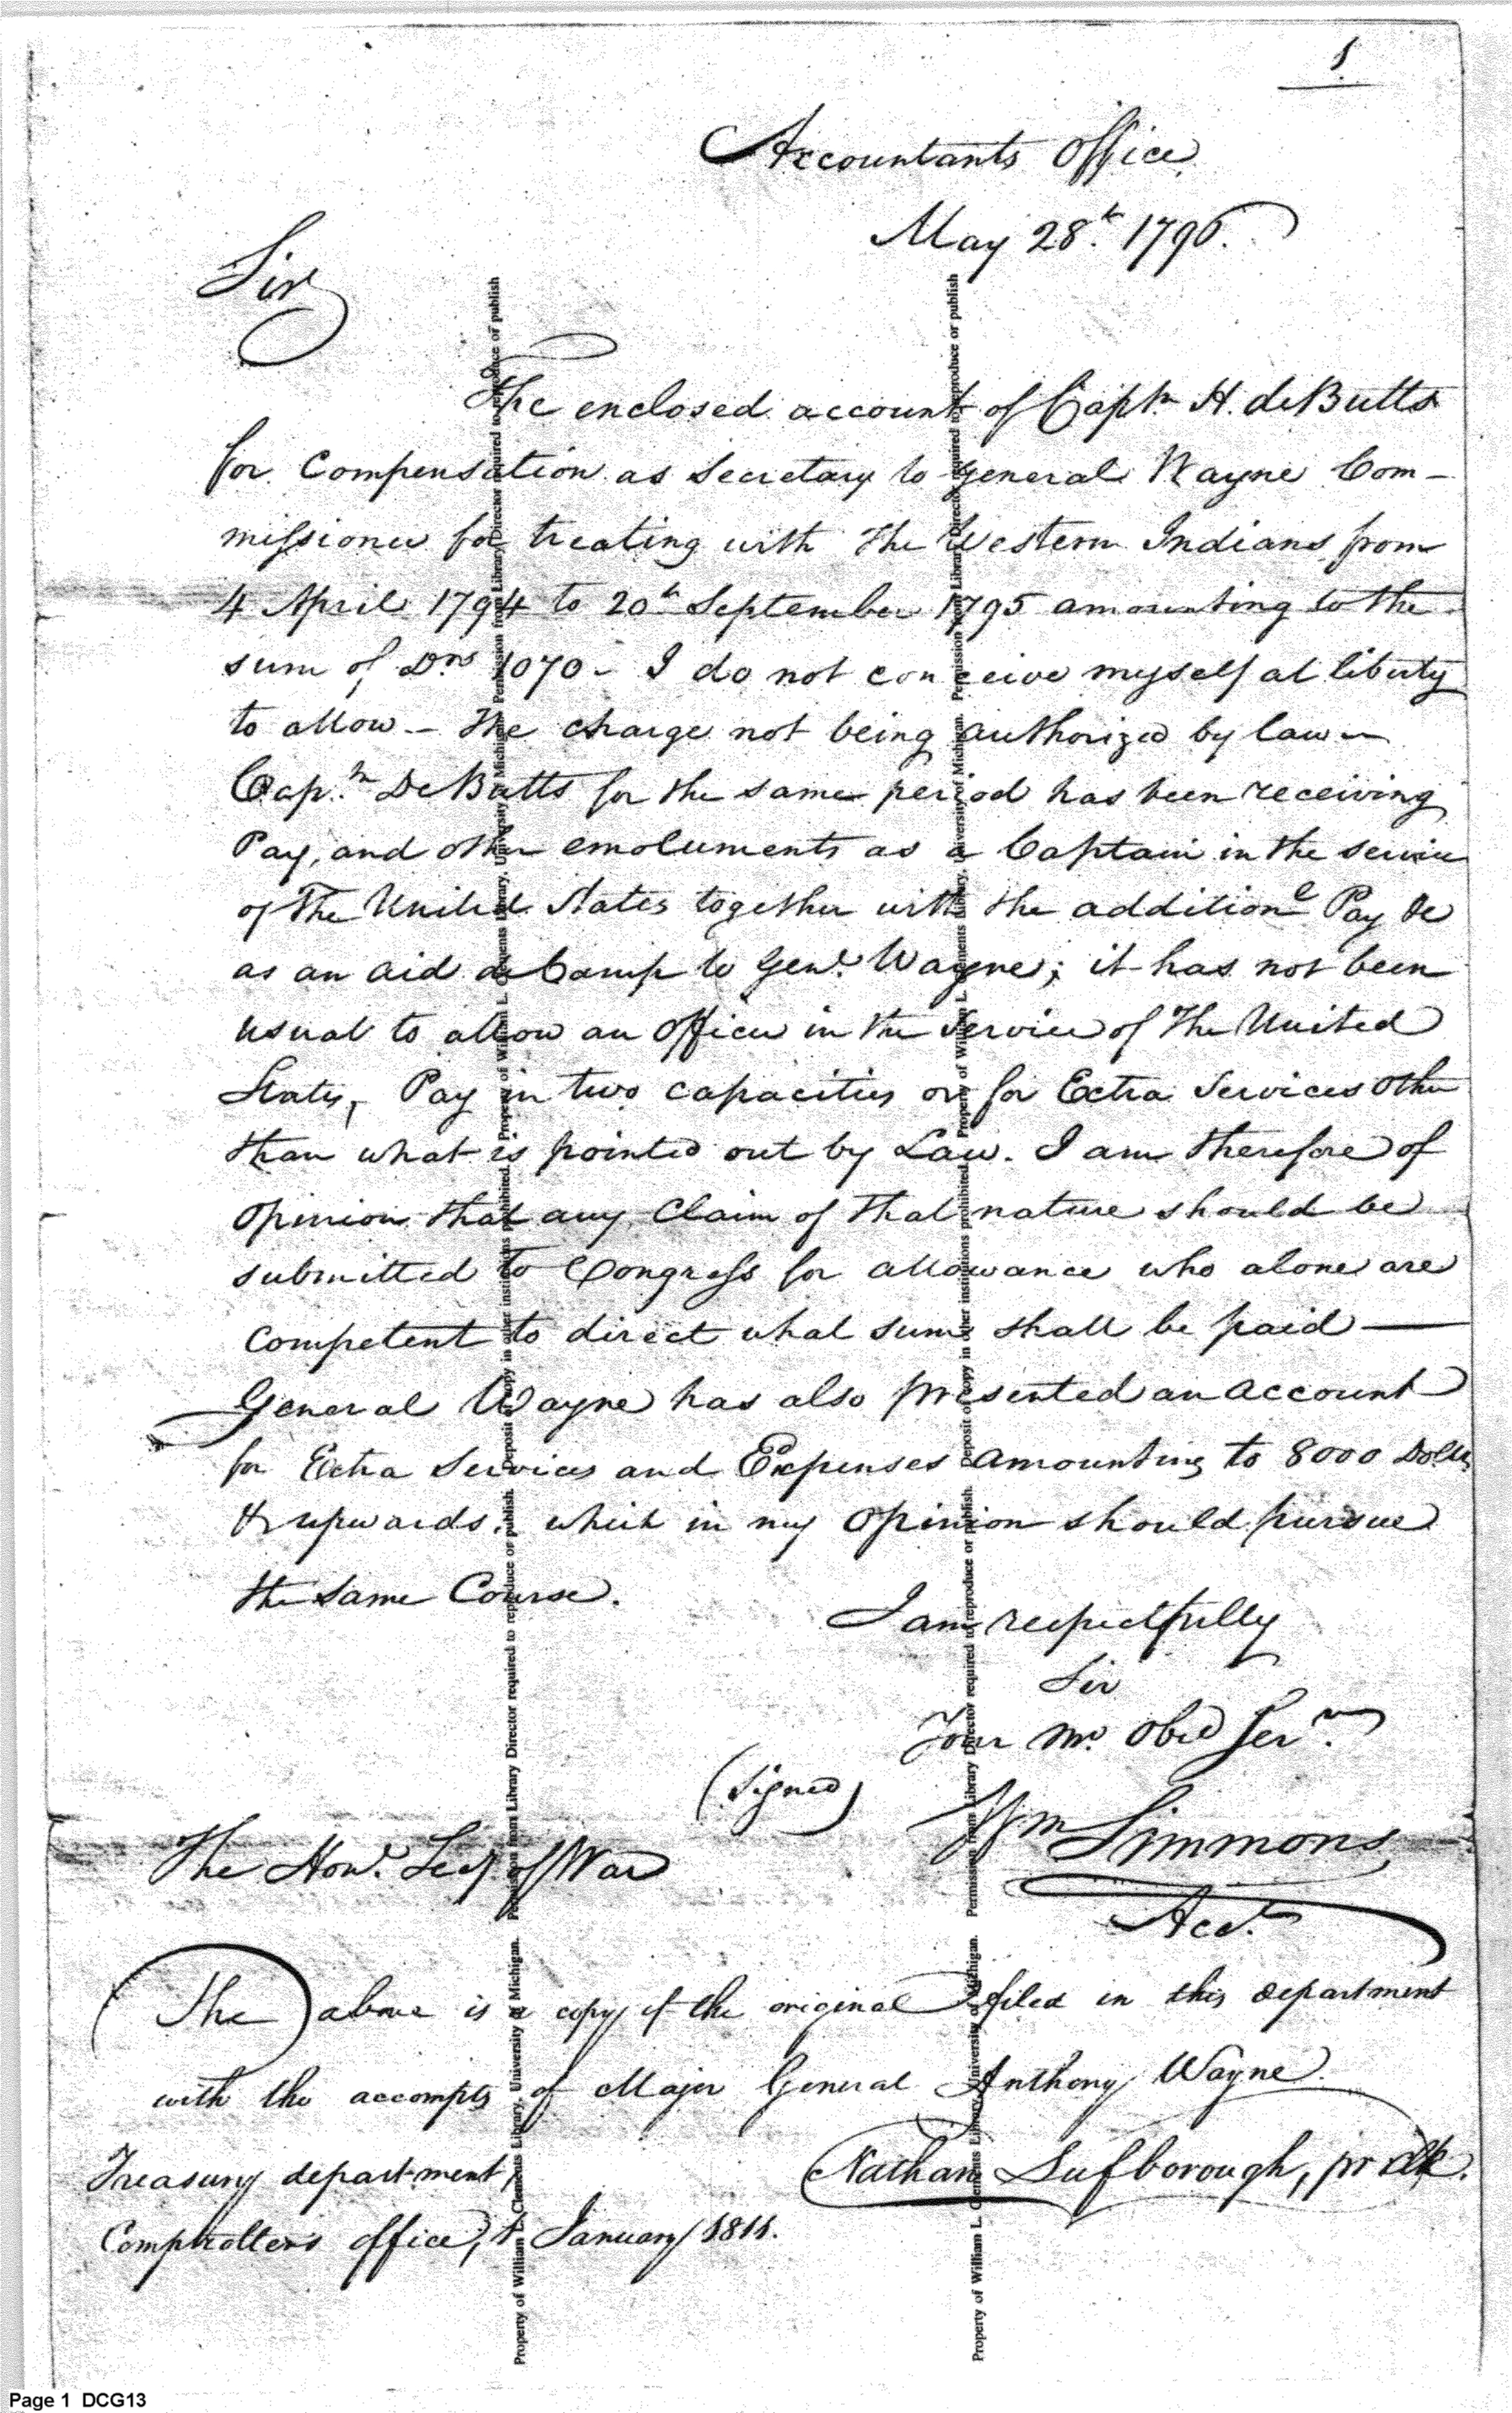 1
Accountants Office
May 28th. 1796.
Sir
The enclosed account of Captn H. deButts
for Compensation as Secretary to General Wayne Com-
missioner for treating with the Western Indians from
4 April 1794 to 20th September 1795 amounting to the
sum of Drs 1070 - I do not conceive myself at liberty
to allow - the charge not being authorized by law -
Cap.tn DeButts for the same period has been receiving
Pay, and other emoluments as a Captain in the service
of the United States together with the additionl Pay &c
as an aid de Camp to Genl. Wayne; it has not been
usual to allow an Officer in the Service of the United
States, Pay in two capacities or for Extra Services other
than what is pointed out by Law. I am therefore of
opinion that any Claim of that nature should be
submitted to Congress for allowance who alone are
competent to direct what sum shall be paid —
General Wayne has also presented an account
for Extra Services and Expenses amounting to 8000 Dolls
& upwards. which in my Opinion should pursue
the same Course.
I am respectfully
Sir
Your Mo. Obed Servt.
(Signed)
Wm Simmons
Acct.
The Honl. Secy of War
The above is a copy of the original filed in this department
with the accompts of Major General Anthony Wayne.
Nathan Lufborough, pr clk.
Treasury department,
Comptrollers office, January 1811.
Property of William L. Clements Library, University of Michigan. Permission from Library Director required to reproduce or publish. Deposit of copy in other institutions prohibited.
Page 1 DCG13